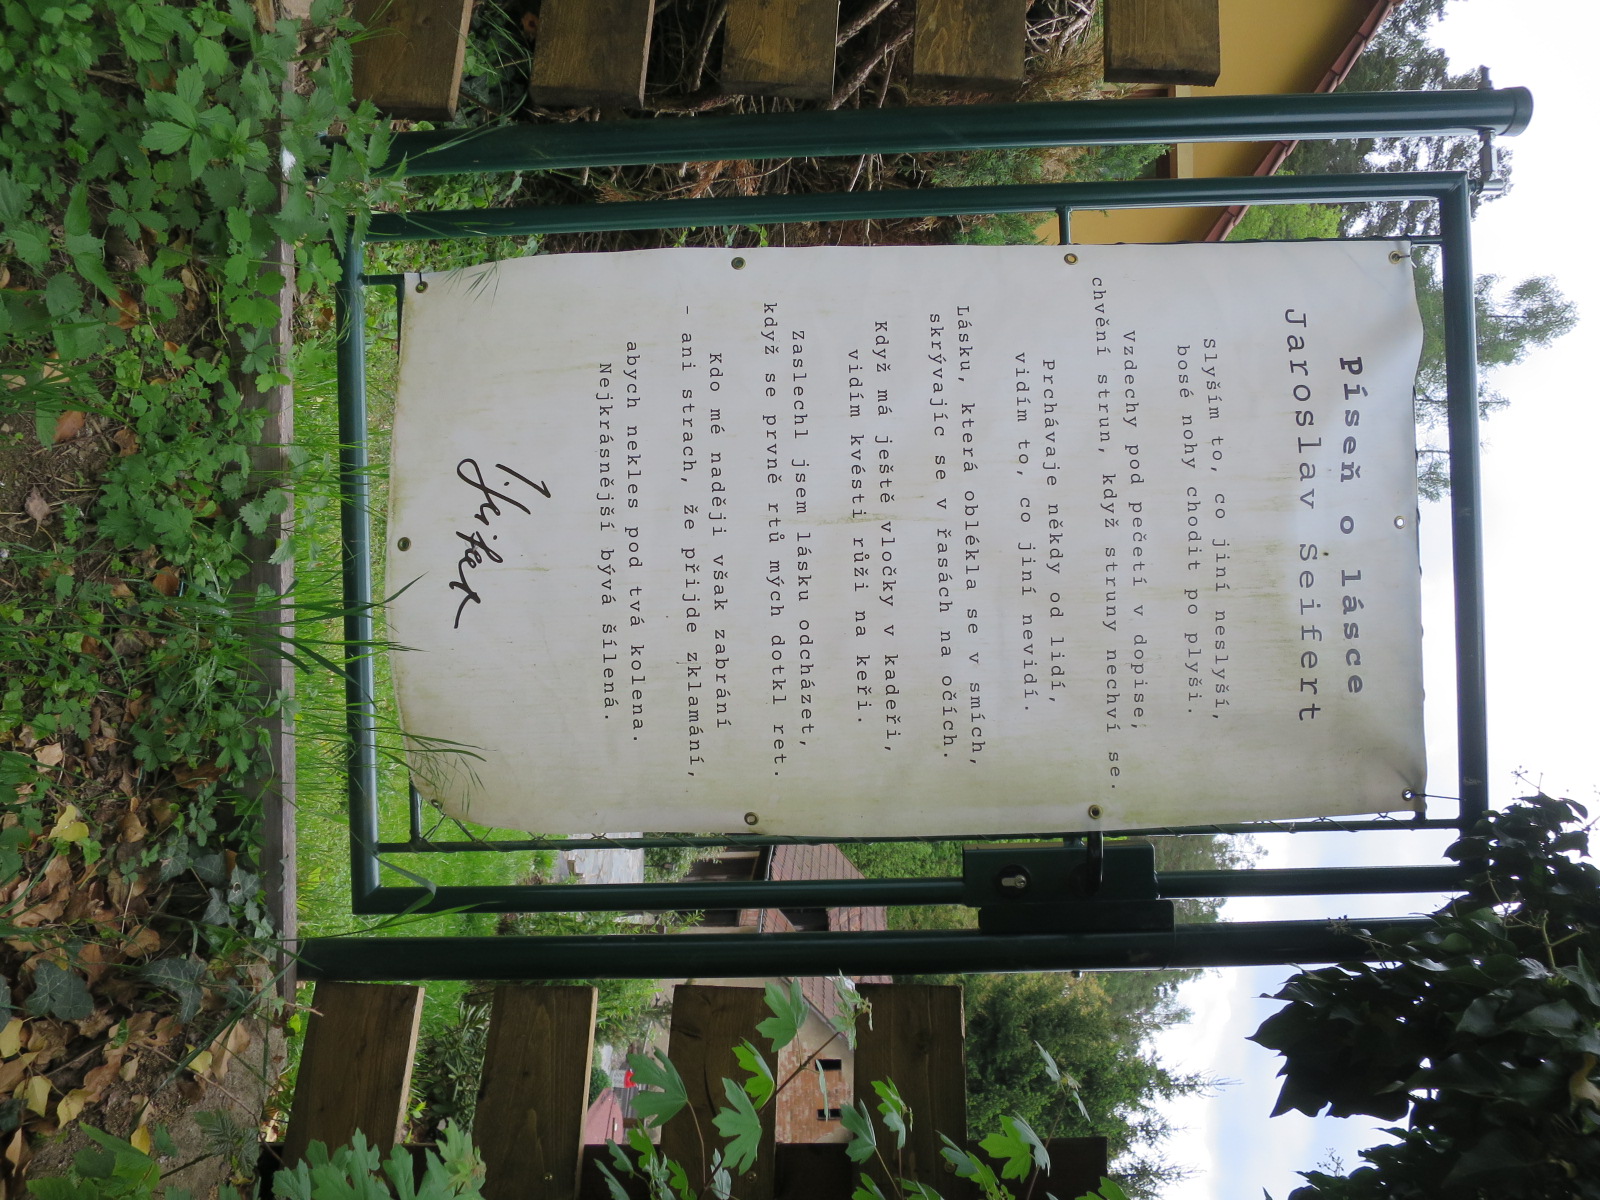 Píseň o lásce
Jaroslav Seifert
Slyším to, co jiní neslyší,
bosé nohy chodit po plyši.
Vzdechy pod pečetí v dopise,
chvění strun, když struny nechví se.
Prchávaje někdy od lidí,
vidím to, co jiní nevidí.
Lásku, která oblékla se v smích,
skrývajíc se v řasách na očích.
Když má ještě vločky v kadeři,
vidím kvésti růži na keři.
Zaslechl jsem lásku odcházet,
když se prvně rtů mých dotkl ret.
Kdo mé naději však zabrání
- ani strach, že přijde zklamání,
abych nekles pod tvá kolena.
Nejkrásnější bývá šílená.